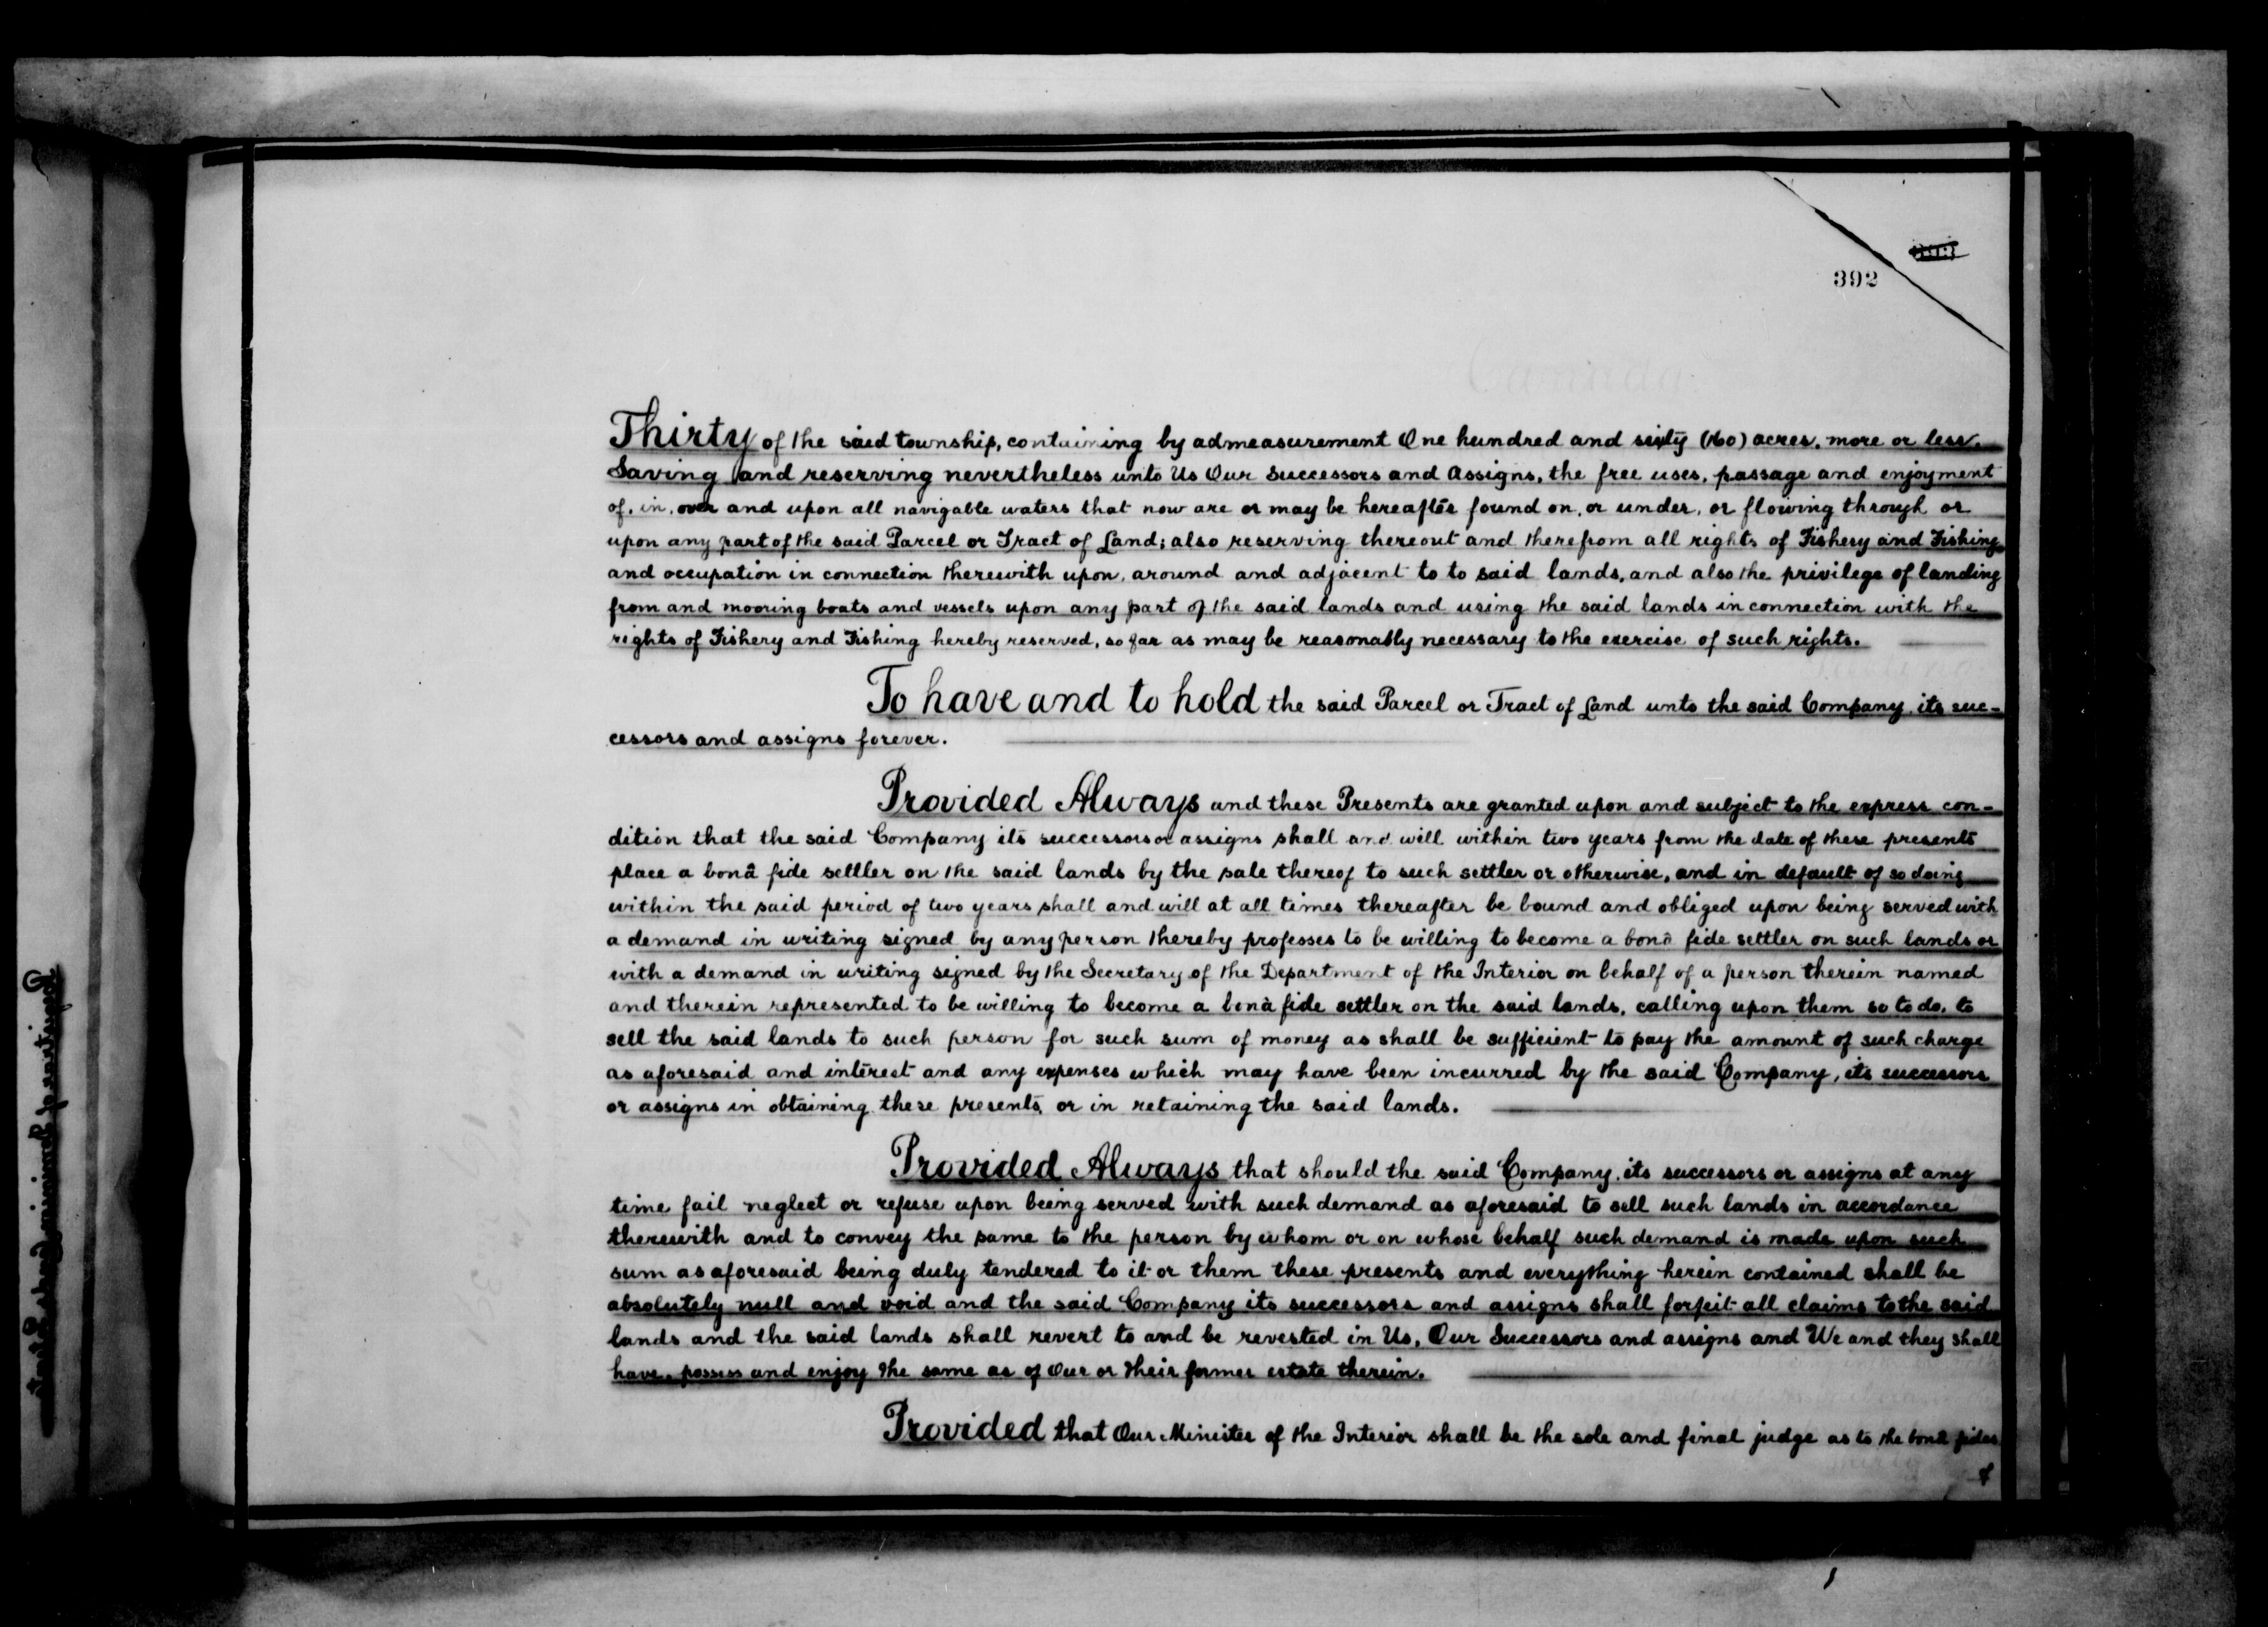 392
Thirty of the said township, containing by admeasurement One hundred and sixty (160) acres, more or less.
Saving and reserving nevertheless unto Us Our Successors and Assigns, the free uses, passage and enjoyment
of, in, over and upon all navigable waters that now are or may be hereafter found on, or under, or flowing through or
upon any part of the said Parcel or Tract of Land; also reserving thereout and therefrom all rights of Fishery and Fishing
and occupation in connection therewith upon, around and adjacent to to said lands, and also the privilege of landing
from and mooring boats and vessels upon any part of the said lands and using the said lands in connection with the
rights of Fishery and Fishing hereby reserved, so far as may be reasonably necessary to the exercise of such rights.
To have and to hold the said Parcel or Tract of Land unto the said Company, its suc-
cessors and assigns forever.
Provided Always and these Presents are granted upon and subject to the express con-
dition that the said Company its successors or assigns shall and will within two years from the date of these presents
place a bonâ fide settler on the said lands by the sale thereof to such settler or otherwise, and in default of so doing
within the said period of two years shall and will at all times thereafter be bound and obliged upon being served with
a demand in writing signed by any person thereby professes to be willing to become a bonâ fide settler on such lands or
with a demand in writing signed by the Secretary of the Department of the Interior on behalf of a person therein named
and therein represented to be willing to become a bonâ fide settler on the said lands, calling upon them so to do, to
sell the said lands to such person for such sum of money as shall be sufficient to pay the amount of such charge
as aforesaid and interest and any expenses which may have been incurred by the said Company, its successors
or assigns in obtaining these presents, or in retaining the said lands.
Provided Always that should the said Company, its successors or assigns at any
time fail neglect or refuse upon being served with such demand as aforesaid to sell such lands in accordance
therewith and to convey the same to the person by whom or on whose behalf such demand is made upon such
sum as aforesaid being duly tendered to it or them these presents and everything herein contained shall be
absolutely null and void and the said Company its successors and assigns shall forfeit all claims to the said
lands and the said lands shall revert to and be revested in Us, Our Successors and assigns and We and they shall
have, possess and enjoy the same as of Our or their former estate therein.
Provided that Our Minister of the Interior shall be the sole and final judge as to the bonâ fides